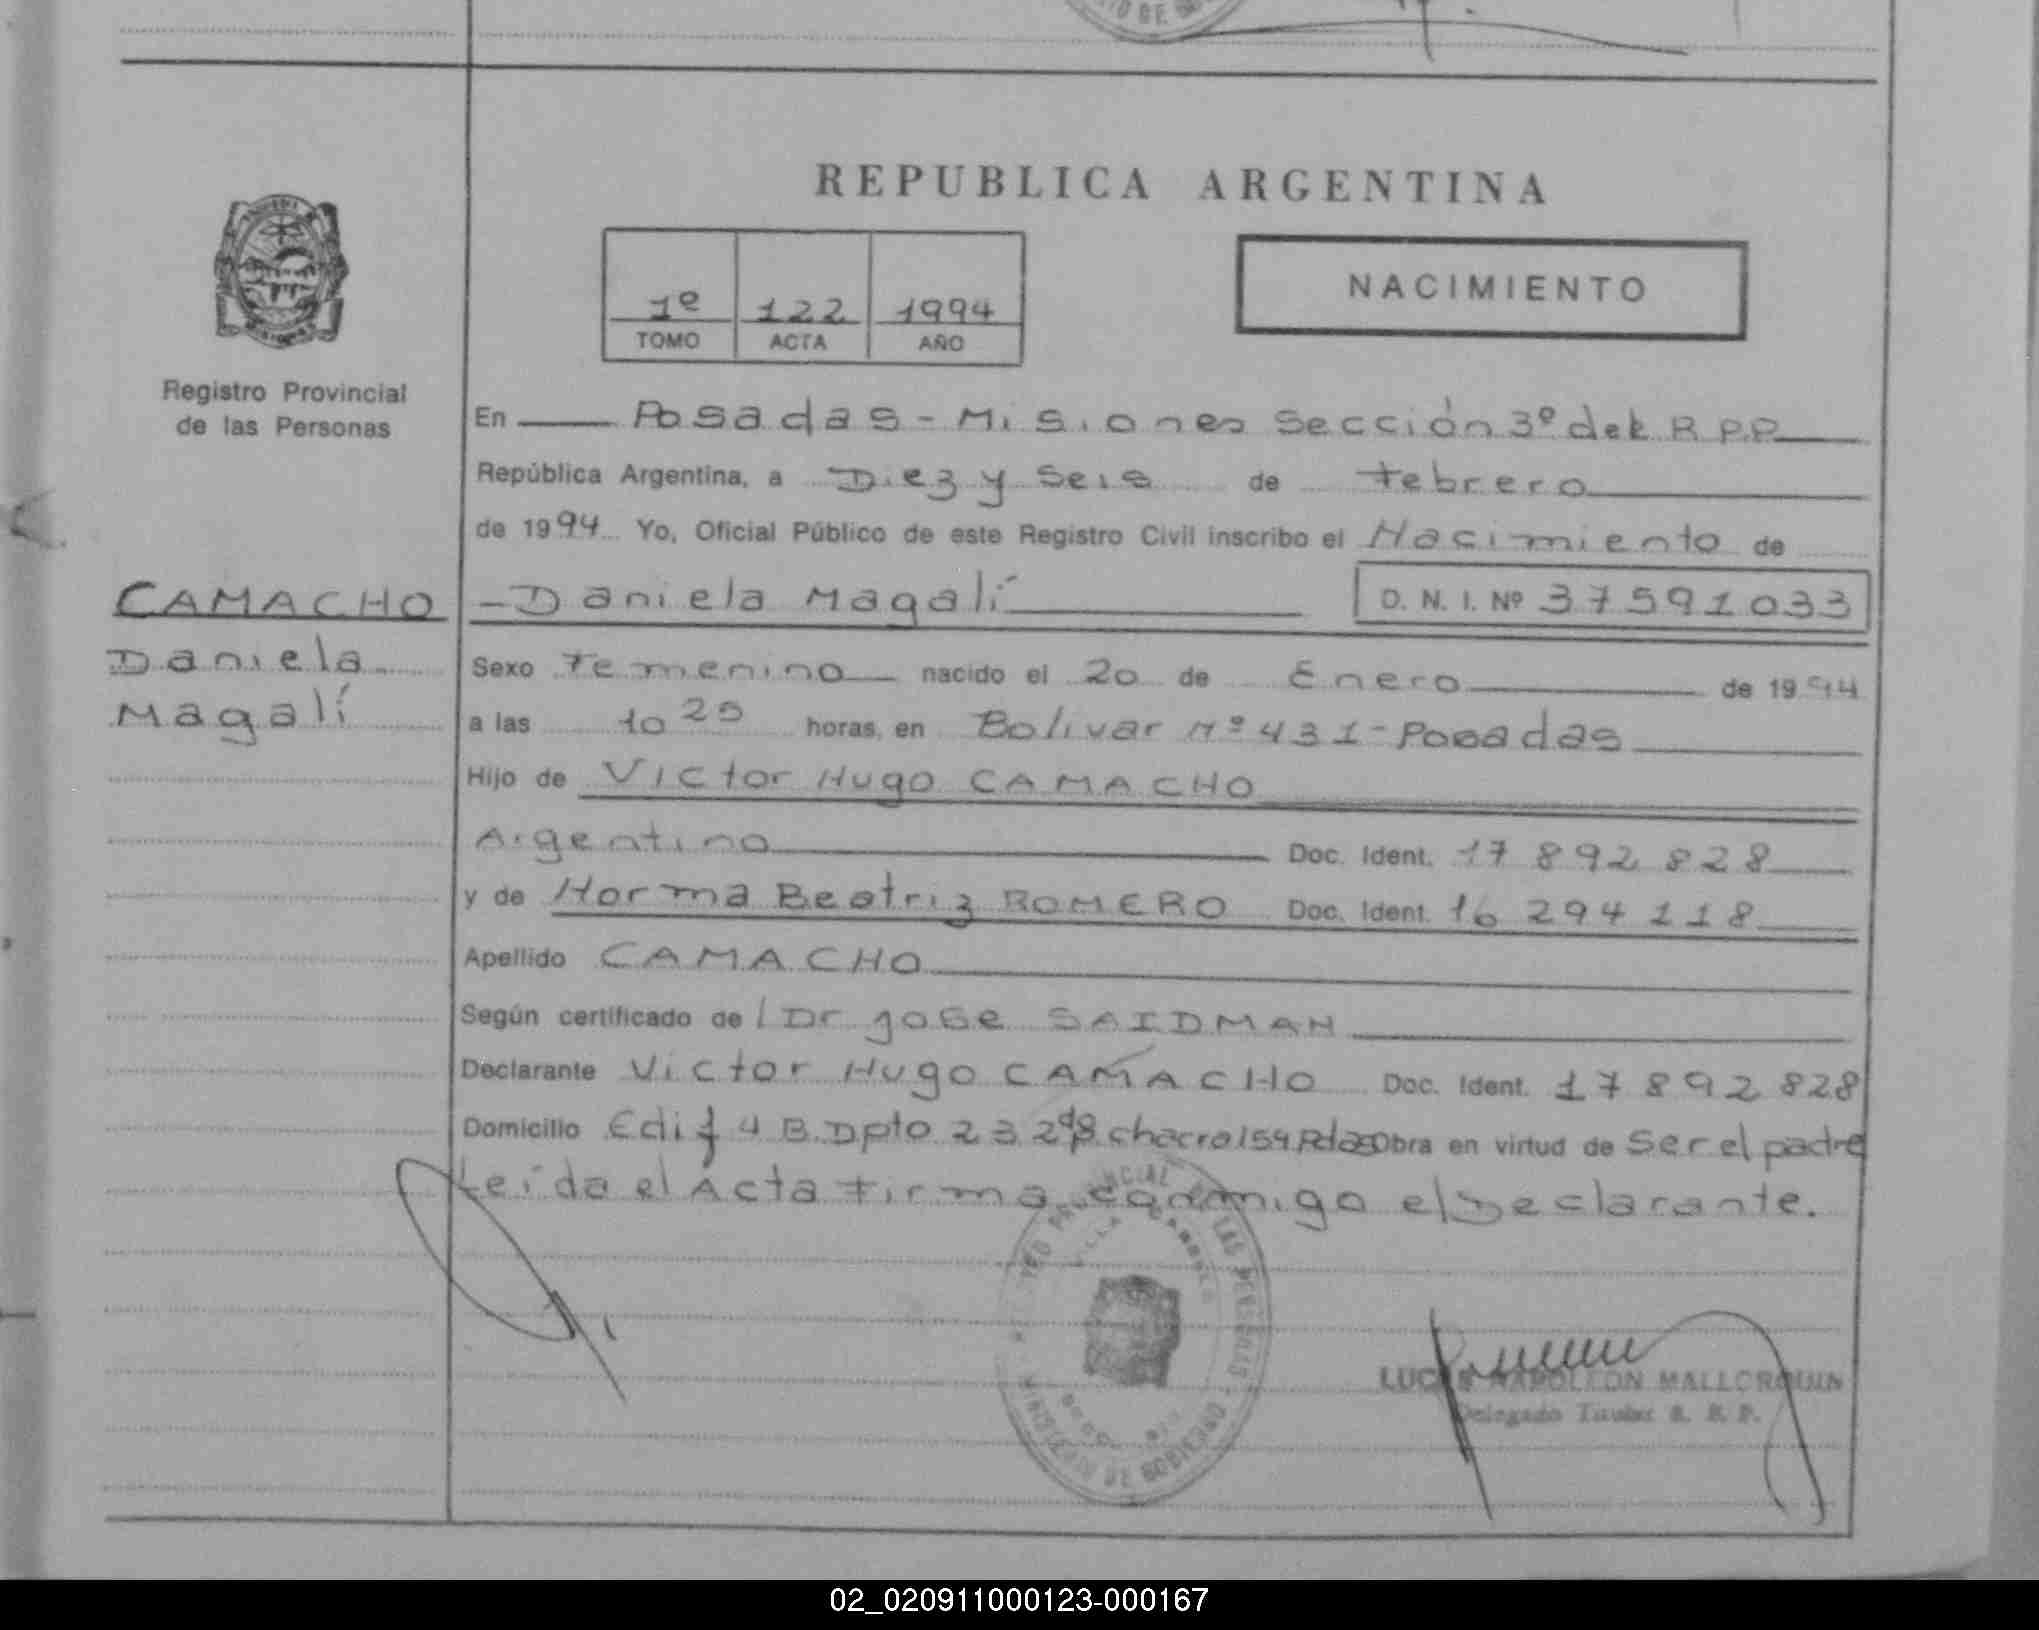 REPUBLICA ARGENTINA
1º 122 1994
TOMO ACTA AÑO
NACIMIENTO
Registro Provincial
de las Personas
En Posadas - Misiones Sección 3º del R.P.P.
República Argentina, a Diez y Seis de Febrero
de 1994 Yo, Oficial Público de este Registro Civil inscribo el Nacimiento de
CAMACHO
Daniela
Magalí
- Daniela Magalí D. N. I. Nº 37591033
Sexo Femenino nacido el 20 de Enero de 1994
a las 10 25 horas, en Bolivar Nº 431 - Posadas
Hijo de Victor Hugo CAMACHO
Argentino Doc. Ident. 17 892 828
y de Norma Beatriz ROMERO Doc. Ident. 16 294 118
Apellido CAMACHO
Según certificado de Dr Jose SAIDMAN
Declarante Victor Hugo CAMACHO Doc. Ident. 17 892 828
Domicilio Edif 4 B. Dpto 23 chacra 154 Pdas Obra en virtud de Ser el padre
Leida el Acta Firma conmigo el Declarante.
REGISTRO PROVINCIAL DE LAS PERSONAS
VILLA CABELLO
MINISTERIO DE GOBIERNO
LUCAS NAPOLEON MALLORQUIN
Delegado Titular R. P. P.
02_020911000123-000167